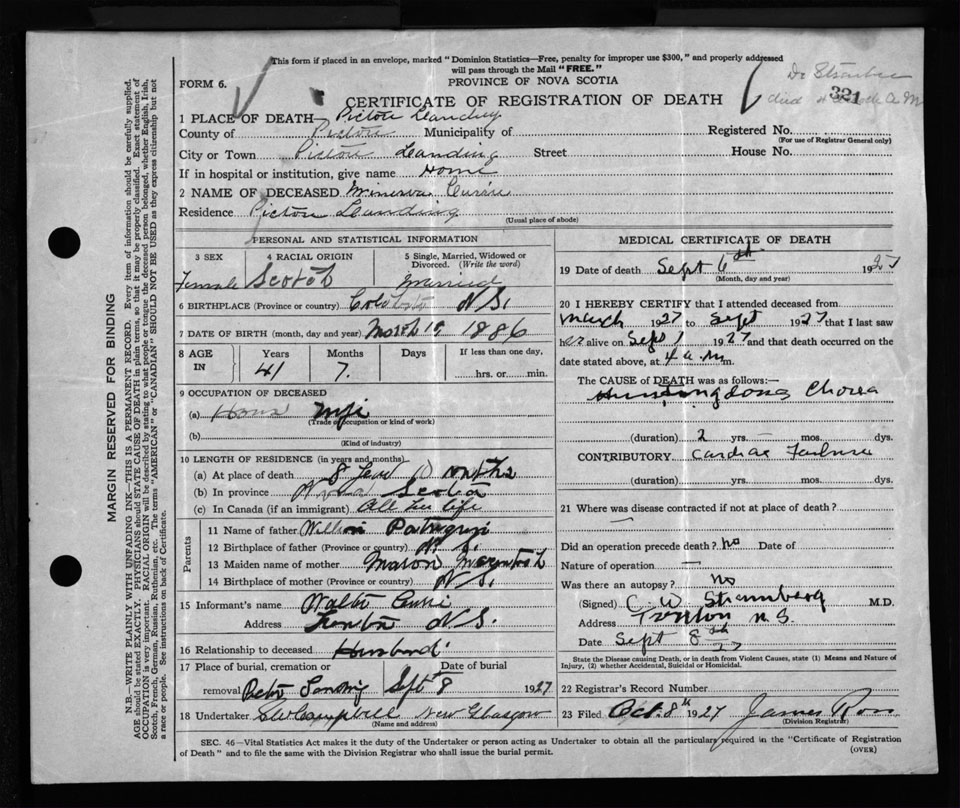 This form if placed in an envelope, marked "Dominion Statistics—Free, penalty for improper use $300," and properly addressed
will pass through the Mail "FREE."
FORM 6.
PROVINCE OF NOVA SCOTIA
321
CERTIFICATE OF REGISTRATION OF DEATH
1 PLACE OF DEATH— Pictou
County of Pictou Municipality of Registered No.
(For use of Registrar General only)
City or Town Pictou Landing Street House No.
If in hospital or institution, give name Home
2 NAME OF DECEASED Minerva Currie
Residence Pictou Landing
(Usual place of abode)
PERSONAL AND STATISTICAL INFORMATION
3 SEX
Female
4 RACIAL ORIGIN
Scotch
5 Single, Married, Widowed or
Divorced. (Write the word)
Married
6 BIRTHPLACE (Province or country) N.S.
7 DATE OF BIRTH (month, day and year) 1886
8 AGE IN
Years Months Days
41 7.
If less than one day,
hrs. or min.
9 OCCUPATION OF DECEASED
(a) House Wife
(Trade occupation or kind of work)
(b)
(Kind of industry)
10 LENGTH OF RESIDENCE (in years and months)
(a) At place of death 8
(b) In province Nova Scotia
(c) In Canada (if an immigrant) All her life
Parents
11 Name of father
12 Birthplace of father (Province or country) N.S.
13 Maiden name of mother
14 Birthplace of mother (Province or country) N.S.
15 Informant's name Walter Currie
Address Trenton N.S.
16 Relationship to deceased Husband
17 Place of burial, cremation or
removal
Date of burial
Sept 8 1927
18 Undertaker Campbell New Glasgow
(Name and address)
MEDICAL CERTIFICATE OF DEATH
19 Date of death Sept 6th 1927
(Month, day and year)
20 I HEREBY CERTIFY that I attended deceased from
March 1927 to Sept 1927 that I last saw
her alive on Sept 1 1927 and that death occurred on the
date stated above, at 4 a.m.
The CAUSE of DEATH was as follows:—
Huntingdons Chorea
(duration) 2 yrs. mos. dys.
CONTRIBUTORY Cardiac Failure
(duration) yrs. mos. dys.
21 Where was disease contracted if not at place of death?
Did an operation precede death? no Date of
Nature of operation —
Was there an autopsy? no
(Signed) C W M.D.
Address Trenton N.S.
Date Sept 8th 27
State the Disease causing Death, or in death from Violent Causes, state (1) Means and Nature of
Injury, (2) whether Accidental, Suicidal or Homicidal.
22 Registrar's Record Number
23 Filed Oct. 8th 1927 James Ross
(Division Registrar)
SEC. 46—Vital Statistics Act makes it the duty of the Undertaker or person acting as Undertaker to obtain all the particulars required in the "Certificate of Registration
of Death" and to file the same with the Division Registrar who shall issue the burial permit.
(OVER)
MARGIN RESERVED FOR BINDING
N.B.—WRITE PLAINLY WITH UNFADING INK—THIS IS A PERMANENT RECORD. Every item of information should be carefully supplied.
AGE should be stated EXACTLY. PHYSICIANS should STATE CAUSE OF DEATH in plain terms, so that it may be properly classified. Exact statement of
OCCUPATION is very important. RACIAL ORIGIN will be described by stating to what people or tongue the deceased person belonged, whether English, Irish,
Scotch, French, German, Russian, Ruthenian, etc. The terms "AMERICAN" or "CANADIAN" SHOULD NOT BE USED as they express citizenship but not
a race or people. See instructions on back of Certificate.